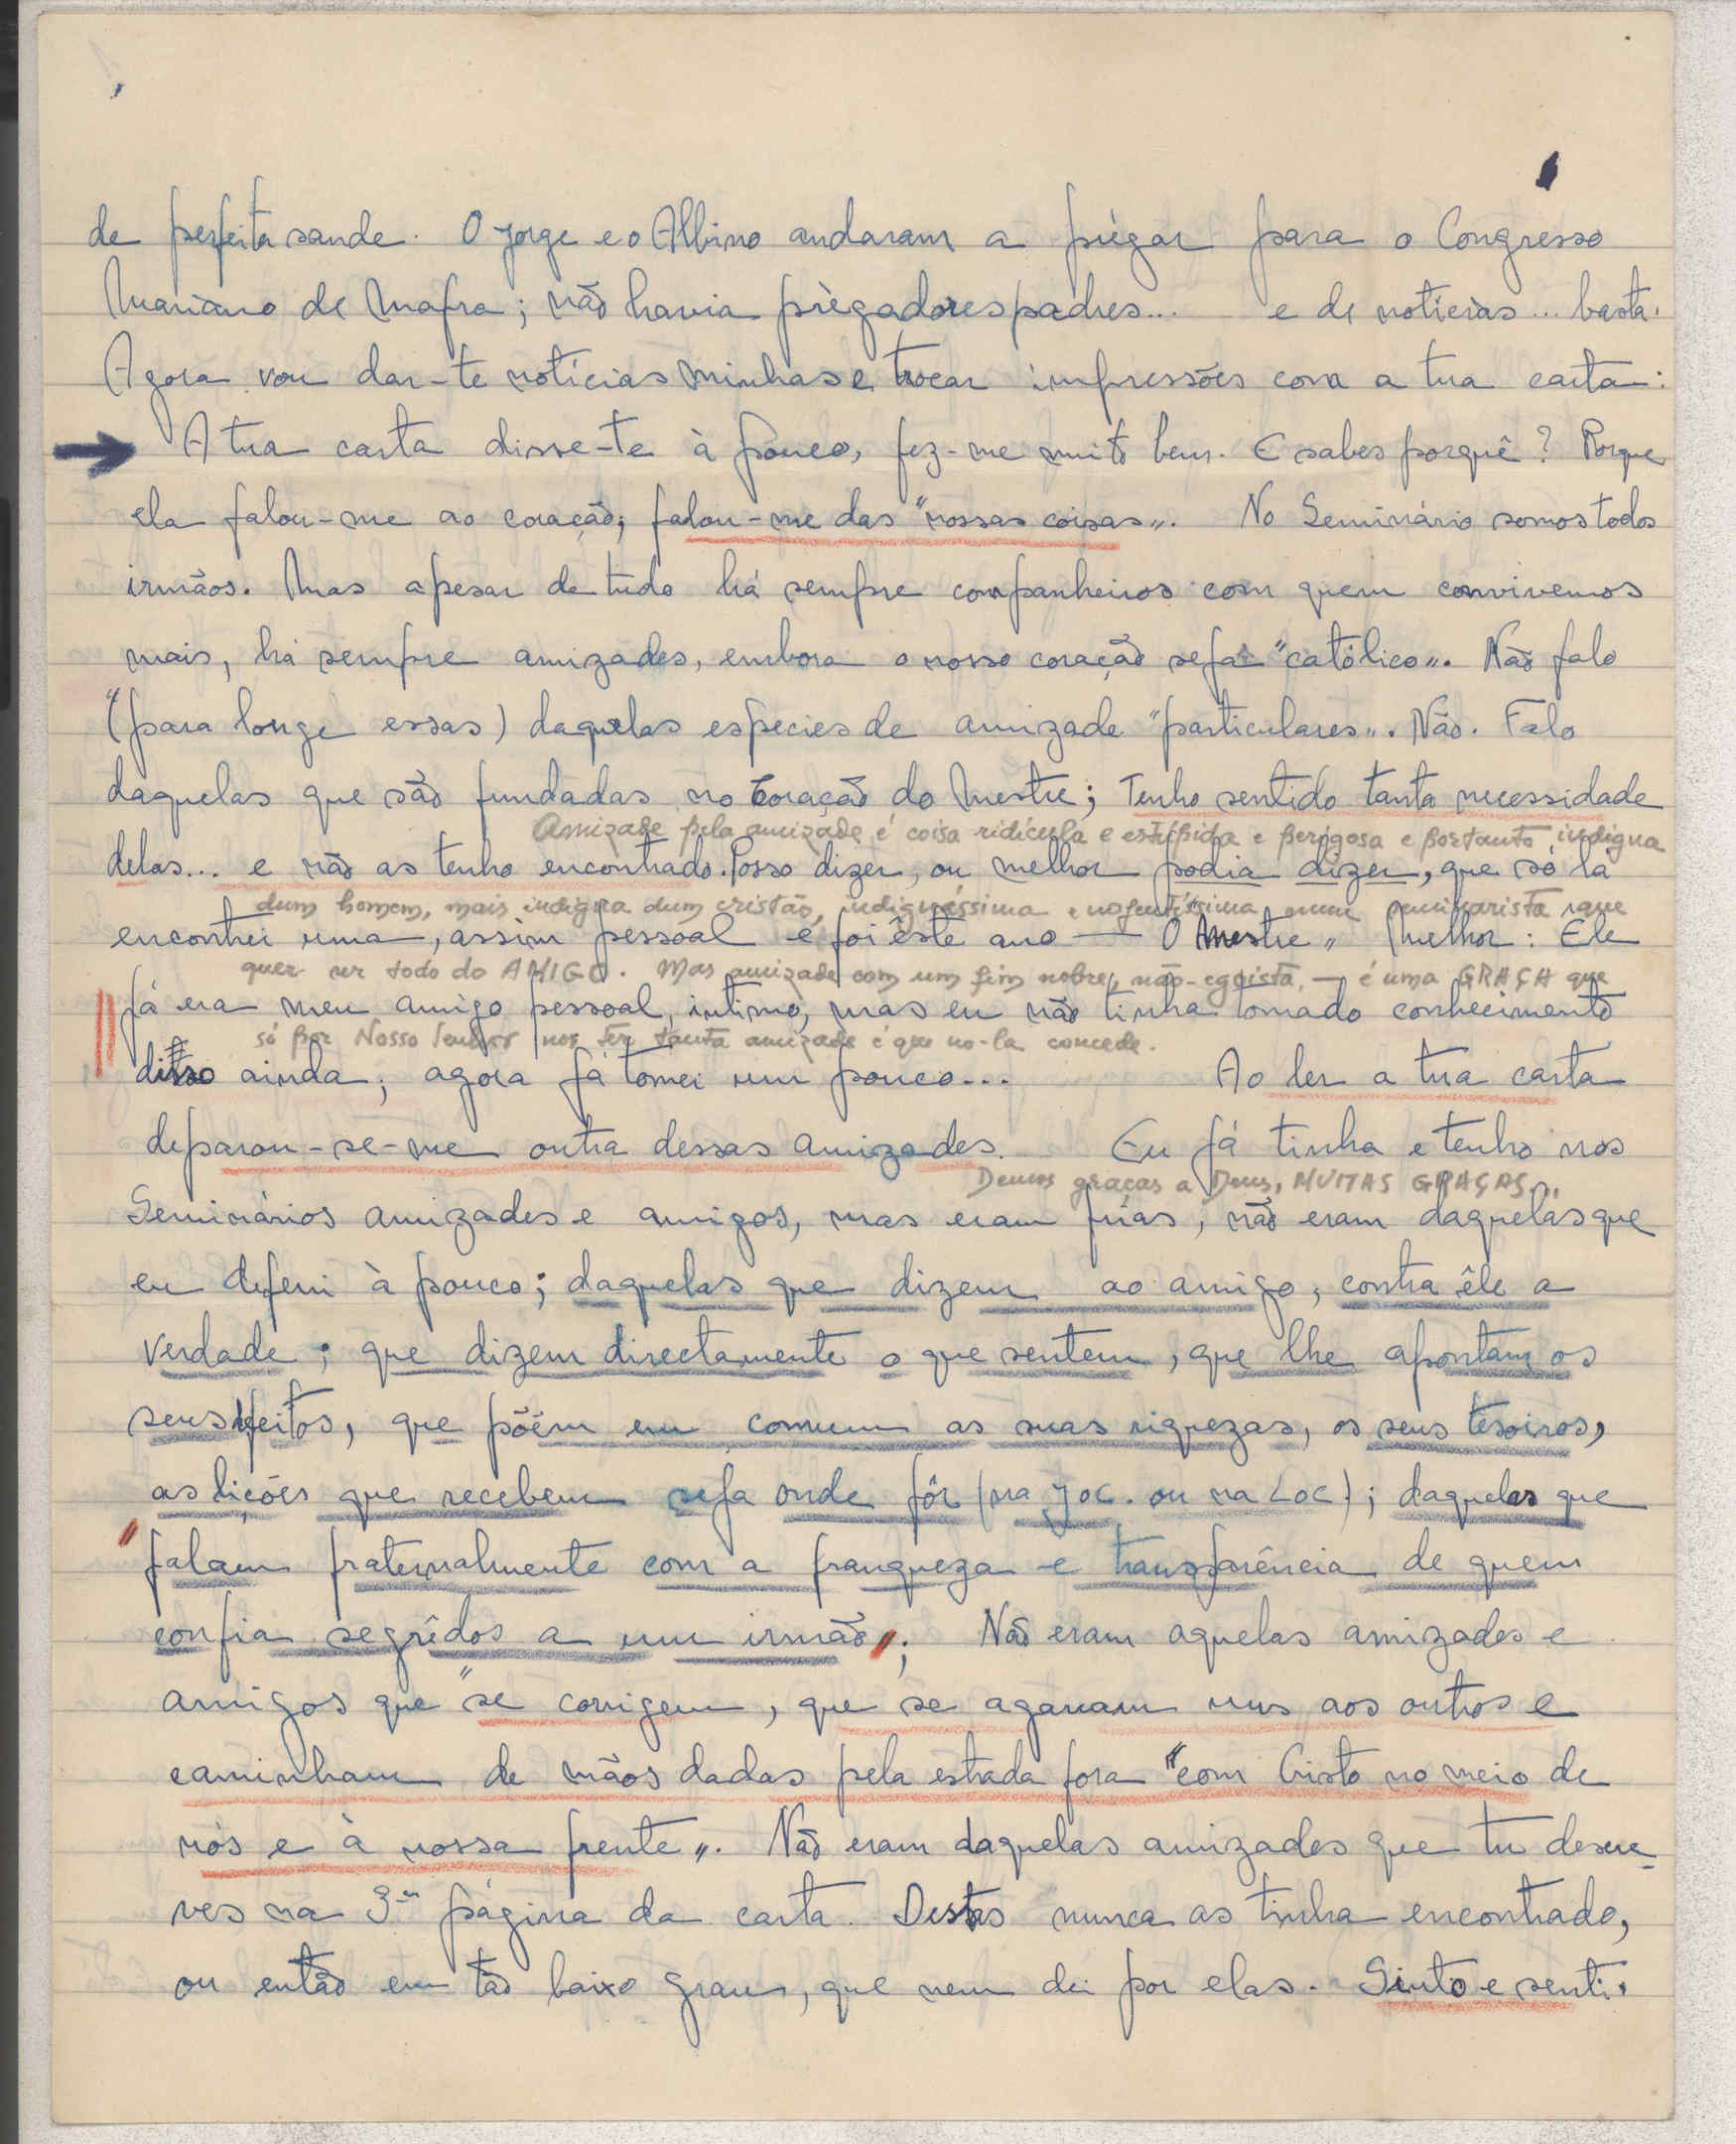 de perfeita saude. O Jorge e o Albino andaram a prègar para o Congresso
Mariano de Mafra; não havia prègadores padres... e de notícias... basta.
Agora vou dar-te notícias minhas e trocar impressões com a tua carta:
A tua carta disse-te à pouco, fez-me muito bem. E sabes porquê? Porque
ela falou-me ao coração; falou-me das "nossas coisas". No Seminário somos todos
irmãos. Mas apesar de tudo há sempre companheiros com quem convivemos
mais, há sempre amizades, embora o nosso coração seja "católico". Não falo
(para longe essas) daquelas especies de amizade "particulares". Não. Falo
daquelas que são fundadas no Coração do Mestre; Tenho sentido tanta necessidade
Amizade pela amizade é coisa ridícula e estúpida e perigosa e portanto indigna
delas... e não as tenho encontrado. Posso dizer, ou melhor podia dizer, que só lá
dum homem, mais indigna dum cristão, indigníssima e nojentíssima num seminarista que
encontrei uma, assim pessoal e foi êste ano — "O Mestre" Melhor: Ele
quer ser todo do AMIGO. Mas amizade com um fim nobre, não-egoista, — é uma GRAÇA que
já era meu amigo pessoal, intimo, mas eu não tinha tomado conhecimento
só por Nosso Senhor nos ter tanta amizade é que no-la concede.
disso ainda; agora já tomei um pouco... Ao ler a tua carta
deparou-se-me outra dessas amizades. Eu já tinha e tenho nos
Demos graças a Deus, MUITAS GRAÇAS...
Seminários amizades e amigos, mas eram frias, não eram daquelas que
eu deferi à pouco; daquelas que dizem ao amigo, contra êle a
verdade; que dizem directamente o que sentem, que lhe apontam os
seus defeitos, que põem em comum as suas riquezas, os seus tesoiros,
as lições que recebem seja onde fôr (na JOC. ou na LOC); daquelas que
"falam fraternalmente com a franqueza e transparência de quem
confia segrêdos a um irmão"; Não eram aquelas amizades e
amigos que "se corrigem, que se agarram uns aos outros e
caminham de mãos dadas pela estrada fora "com Cristo no meio de
nós e à nossa frente". Não eram daquelas amizades que tu descre-
ves na 3ª página da carta. Destas nunca as tinha encontrado,
ou então em tão baixo grau, que nem dei por elas. Sinto e senti,